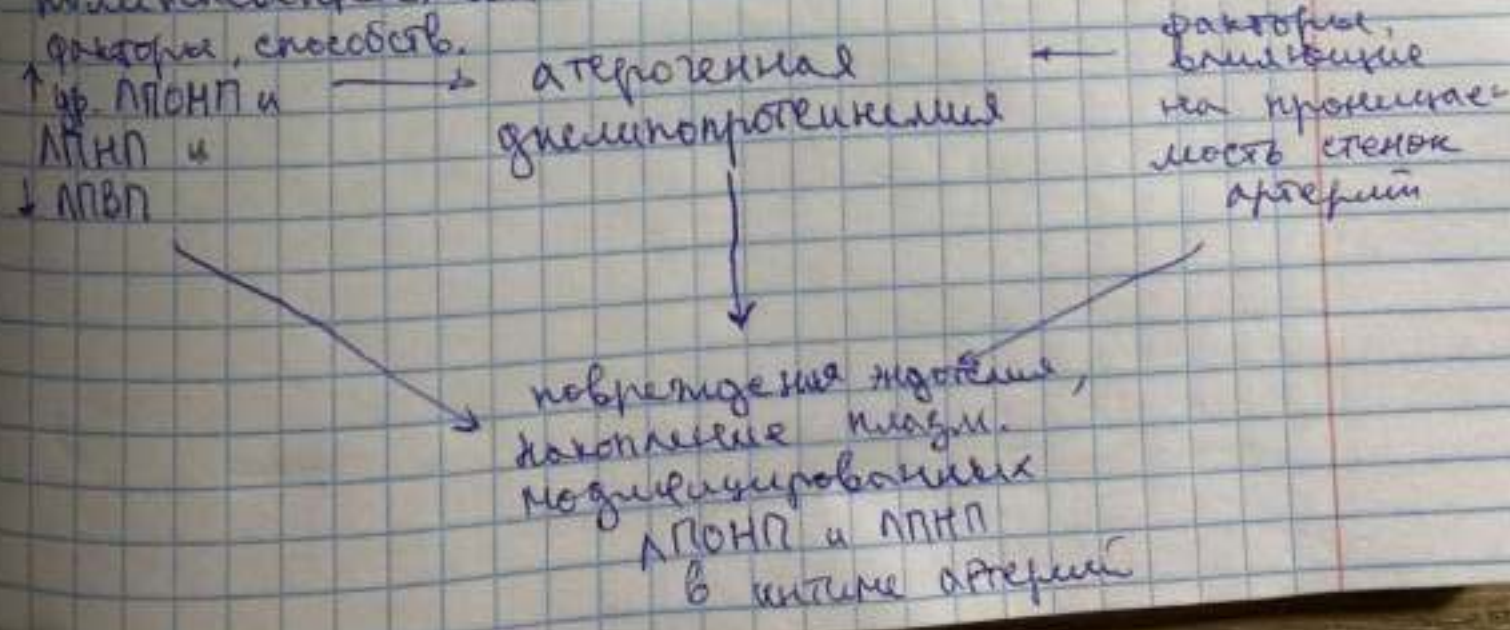 факторы, способств.
↑ ур. ЛПОНП и
ЛПНП и
↓ ЛПВП
атерогенная
дислипопротеинемия
факторы,
влияющие
на проницае-
мость стенок
артерий
повреждения эндотелия,
накопление плазм.
модифицированных
ЛПОНП и ЛПНП
в интиме артерий